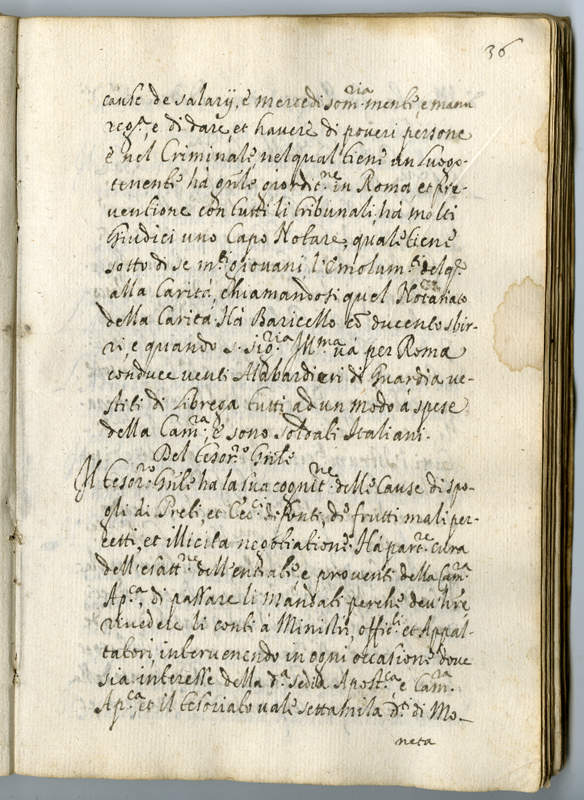 36
cause de salarij, e mercedi som.ria mente, e manu
reg.a, e di dare, et havere di poveri persone
e nel Criminale nel qual tiene un Luogo-
tenente ha gn̄le giordit.ne in Roma, et pre-
ventione con tutti li tribunali, ha molti
Giudici uno Capo Notare, quale tiene
sotto di se m.ti giovani l'Emolum.ti del q.le
alla Carità, chiamandosi quel Notariato
della Carità. Hà Baricello cō ducento sbir-
ri, e quando s. sig.ria Ill.ma và per Roma
conduce venti Alabardieri di Guardia ve-
stiti di librea tutti ad un modo à spese
della Cam.ra, e sono soldati Italiani.
Del tesor.ro Gn̄le
Il tesor.ro Gn̄le ha la sua cognit.ne delle Cause di spo-
gli di Preti, et Cec.i defonti, de frutti mal per-
cetti, et illicita negotiatione. Ha par.re cura
dell'esatt.ne dell'entrate e proventi della Cam.ra
Ap.ca, di passare li mandati perche deu'hr̄e
rivedere li conti a Ministri, offic.li et Appal-
tatori intervenendo in ogni occasione dove
sia interesse della d.a sedia Apost.ca e Cam.ra
Ap.ca, et il tesoriato vale settamila d.ti di Mo-
neta